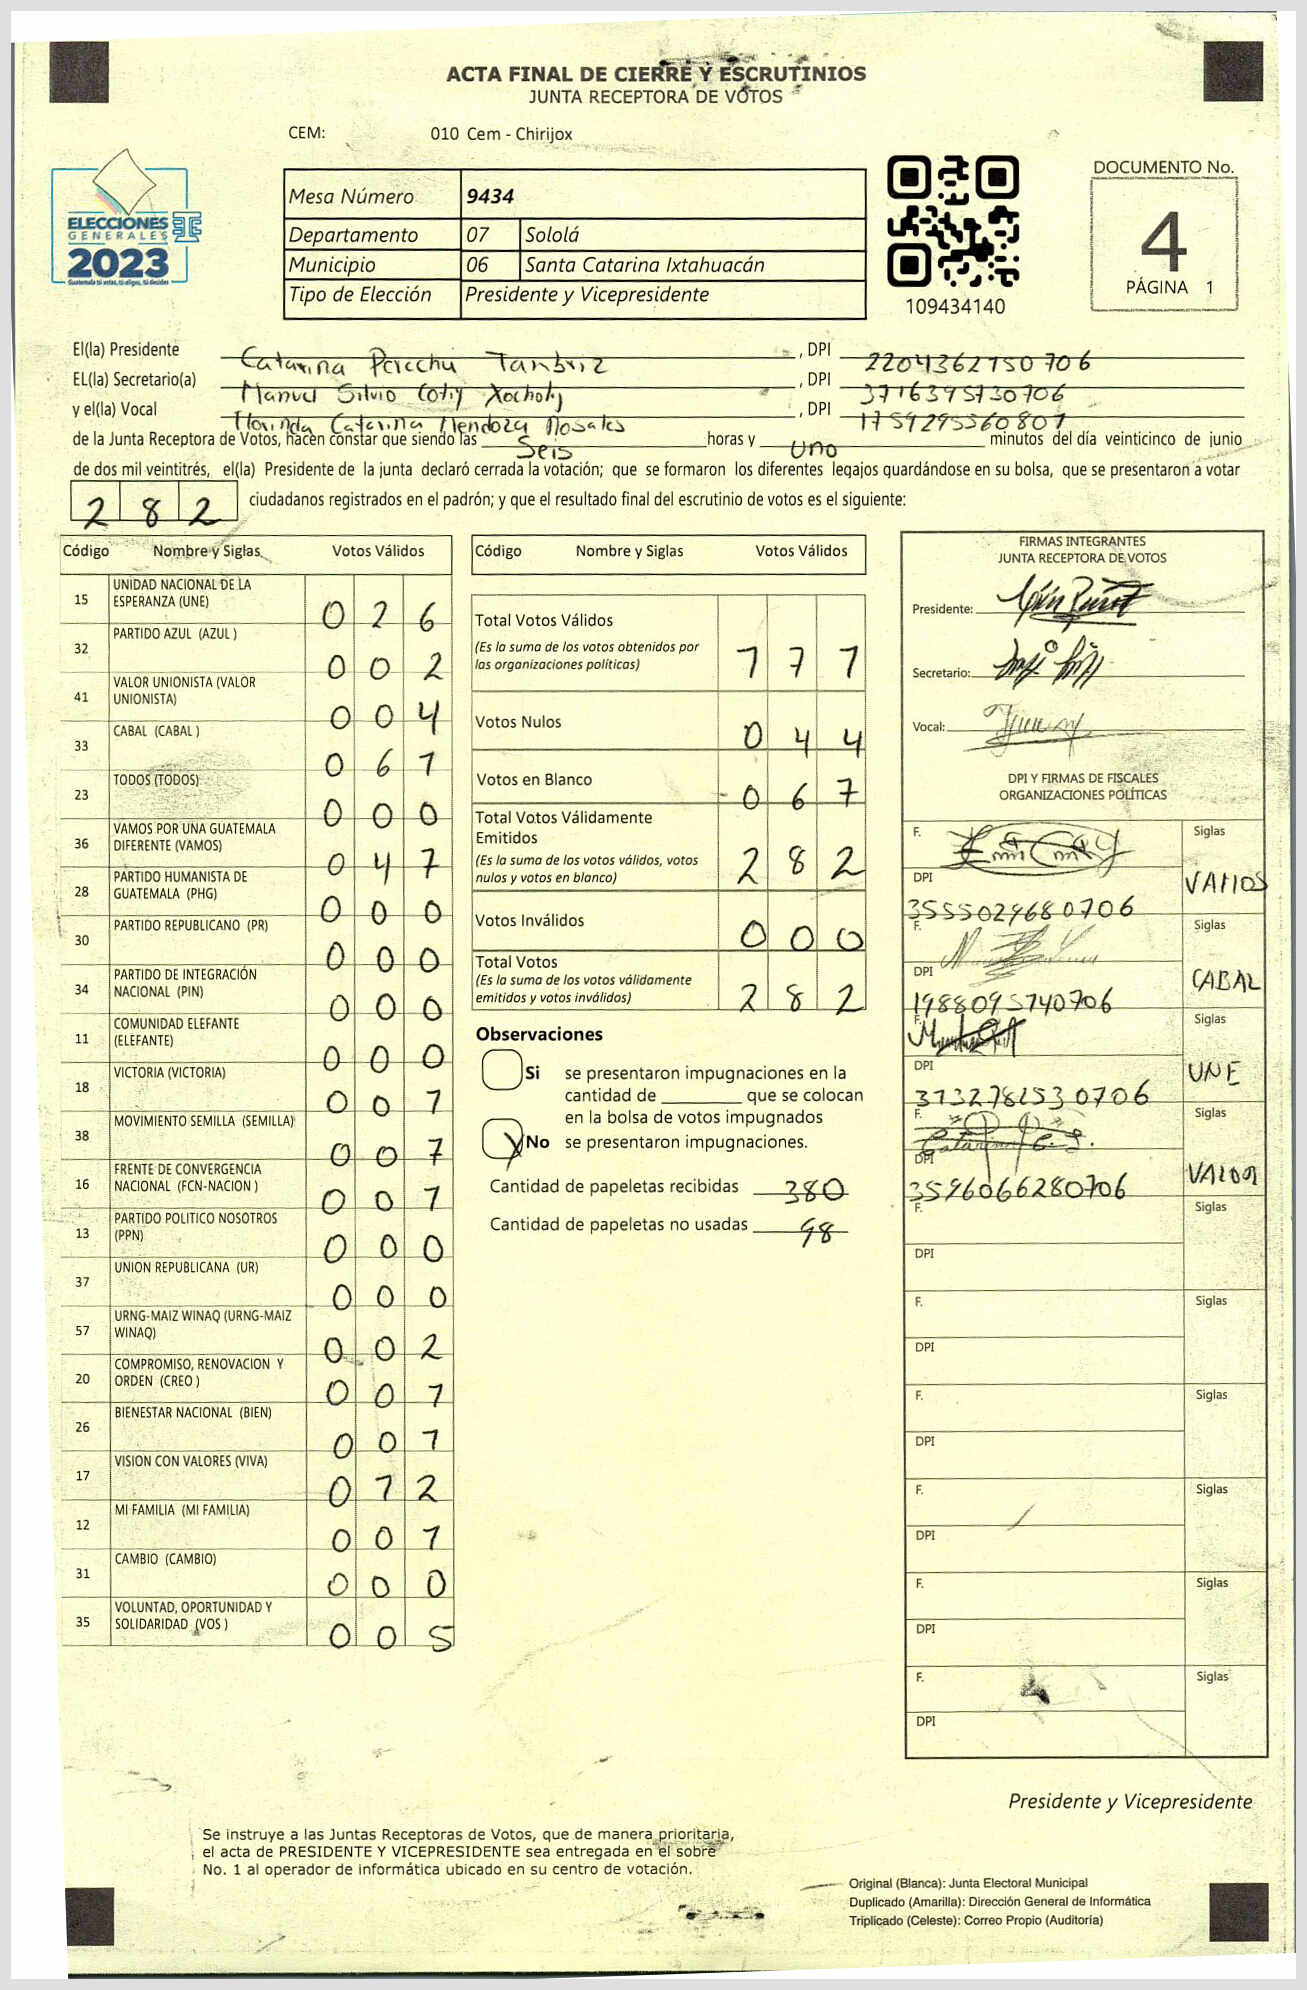 ACTA FINAL DE CIERRE Y ESCRUTINIOS
JUNTA RECEPTORA DE VOTOS
CEM: 010 Cem - Chirijox
ELECCIONES
GENERALES
2023
Guatemala tú votas, tú eliges, tú decides
Mesa Número 9434
Departamento 07 Sololá
Municipio 06 Santa Catarina Ixtahuacán
Tipo de Elección Presidente y Vicepresidente
109434140
DOCUMENTO No.
4
PÁGINA 1
El(la) Presidente Catarina Perechu Tambriz , DPI 2204362150706
EL(la) Secretario(a) Manuel Silvio Cotiy Xocholij , DPI 3716395730706
y el(la) Vocal Florinda Catarina Mendoza Rosales , DPI 1759295560801
de la Junta Receptora de Votos, hacen constar que siendo las Seis horas y uno minutos del día veinticinco de junio
de dos mil veintitrés, el(la) Presidente de la junta declaró cerrada la votación; que se formaron los diferentes legajos quardándose en su bolsa, que se presentaron a votar
282 ciudadanos registrados en el padrón; y que el resultado final del escrutinio de votos es el siguiente:
Código Nombre y Siglas Votos Válidos
15 UNIDAD NACIONAL DE LA ESPERANZA (UNE) 026
32 PARTIDO AZUL (AZUL ) 002
41 VALOR UNIONISTA (VALOR UNIONISTA) 004
33 CABAL (CABAL ) 061
23 TODOS (TODOS) 000
36 VAMOS POR UNA GUATEMALA DIFERENTE (VAMOS) 047
28 PARTIDO HUMANISTA DE GUATEMALA (PHG) 000
30 PARTIDO REPUBLICANO (PR) 000
34 PARTIDO DE INTEGRACIÓN NACIONAL (PIN) 000
11 COMUNIDAD ELEFANTE (ELEFANTE) 000
18 VICTORIA (VICTORIA) 001
38 MOVIMIENTO SEMILLA (SEMILLA) 007
16 FRENTE DE CONVERGENCIA NACIONAL (FCN-NACION ) 001
13 PARTIDO POLITICO NOSOTROS (PPN) 000
37 UNION REPUBLICANA (UR) 000
57 URNG-MAIZ WINAQ (URNG-MAIZ WINAQ) 002
20 COMPROMISO, RENOVACION Y ORDEN (CREO ) 001
26 BIENESTAR NACIONAL (BIEN) 001
17 VISION CON VALORES (VIVA) 012
12 MI FAMILIA (MI FAMILIA) 001
31 CAMBIO (CAMBIO) 000
35 VOLUNTAD, OPORTUNIDAD Y SOLIDARIDAD (VOS ) 005
Código Nombre y Siglas Votos Válidos
Total Votos Válidos 171
(Es la suma de los votos obtenidos por
las organizaciones políticas)
Votos Nulos 044
Votos en Blanco 067
Total Votos Válidamente
Emitidos 282
(Es la suma de los votos válidos, votos
nulos y votos en blanco)
Votos Inválidos 000
Total Votos 282
(Es la suma de los votos válidamente
emitidos y votos inválidos)
Observaciones
Si se presentaron impugnaciones en la
cantidad de ________ que se colocan
en la bolsa de votos impugnados
X No se presentaron impugnaciones.
Cantidad de papeletas recibidas 380
Cantidad de papeletas no usadas 98
FIRMAS INTEGRANTES
JUNTA RECEPTORA DE VOTOS
Presidente:
Secretario:
Vocal:
DPI Y FIRMAS DE FISCALES
ORGANIZACIONES POLÍTICAS
F. Siglas
DPI 3555029680706 VAMOS
F. Siglas
DPI 1988095740706 CABAL
F. Siglas
DPI 3732782530706 UNE
F. Siglas
DPI 3596066280706 VALOR
F. Siglas
DPI
F. Siglas
DPI
F. Siglas
DPI
F. Siglas
DPI
F. Siglas
DPI
F. Siglas
DPI
Presidente y Vicepresidente
Se instruye a las Juntas Receptoras de Votos, que de manera prioritaria,
el acta de PRESIDENTE Y VICEPRESIDENTE sea entregada en el sobre
No. 1 al operador de informática ubicado en su centro de votación.
Original (Blanca): Junta Electoral Municipal
Duplicado (Amarilla): Dirección General de Informática
Triplicado (Celeste): Correo Propio (Auditoría)